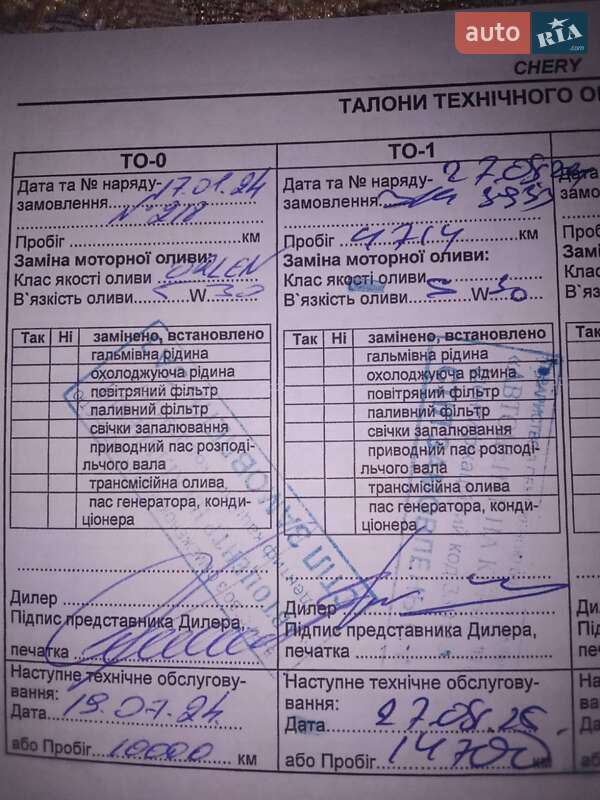 auto RIA .com
CHERY
ТАЛОНИ ТЕХНІЧНОГО
ТО-0
Дата та № наряду- 17.01.24
замовлення
№ 218
Пробіг км
Заміна моторної оливи:
Клас якості оливи ORLEN
В`язкість оливи 5 W 30
Так Ні замінено, встановлено
гальмівна рідина
охолоджуюча рідина
повітряний фільтр
паливний фільтр
свічки запалювання
приводний пас розподі-
льчого вала
трансмісійна олива
пас генератора, конди-
ціонера
Дилер
Підпис представника Дилера,
печатка
Наступне технічне обслугову-
вання:
Дата 19.07.24
або Пробіг 10000 км
ТО-1
Дата та № наряду- 27.08
замовлення
Пробіг 4714 км
Заміна моторної оливи:
Клас якості оливи
В`язкість оливи 5 W 30
Так Ні замінено, встановлено
гальмівна рідина
охолоджуюча рідина
повітряний фільтр
паливний фільтр
свічки запалювання
приводний пас розподі-
льчого вала
трансмісійна олива
пас генератора, конди-
ціонера
Дилер
Підпис представника Дилера,
печатка
Наступне технічне обслугову-
вання:
Дата 27.08.25
або Пробіг 14700 км